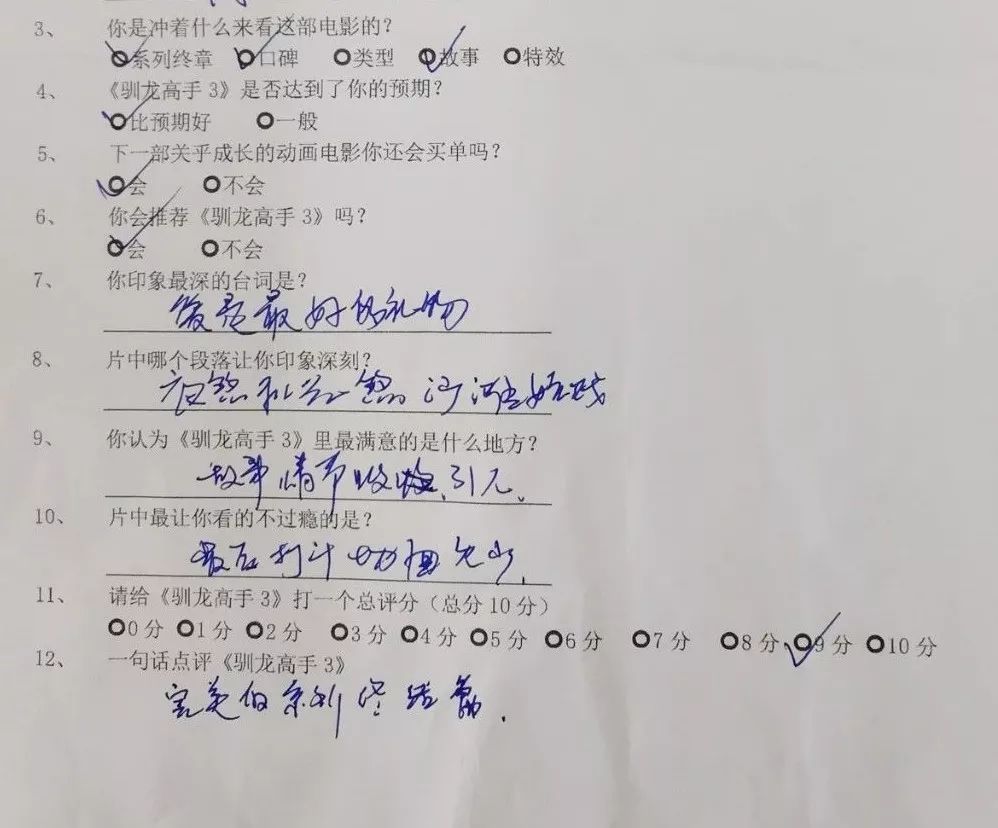 3、 你是冲着什么来看这部电影的?
系列终章 口碑 类型 故事 特效
4、 《驯龙高手3》是否达到了你的预期?
比预期好 一般
5、 下一部关乎成长的动画电影你还会买单吗?
会 不会
6、 你会推荐《驯龙高手3》吗?
会 不会
7、 你印象最深的台词是?
爱是最好的礼物
8、 片中哪个段落让你印象深刻?
夜煞和光煞
9、 你认为《驯龙高手3》里最满意的是什么地方?
故事情节 引人.
10、 片中最让你看的不过瘾的是?
最后打斗 太少.
11、 请给《驯龙高手3》打一个总评分(总分10分)
0分 1分 2分 3分 4分 5分 6分 7分 8分 9分 10分
12、 一句话点评《驯龙高手3》
完美的系列终结篇.